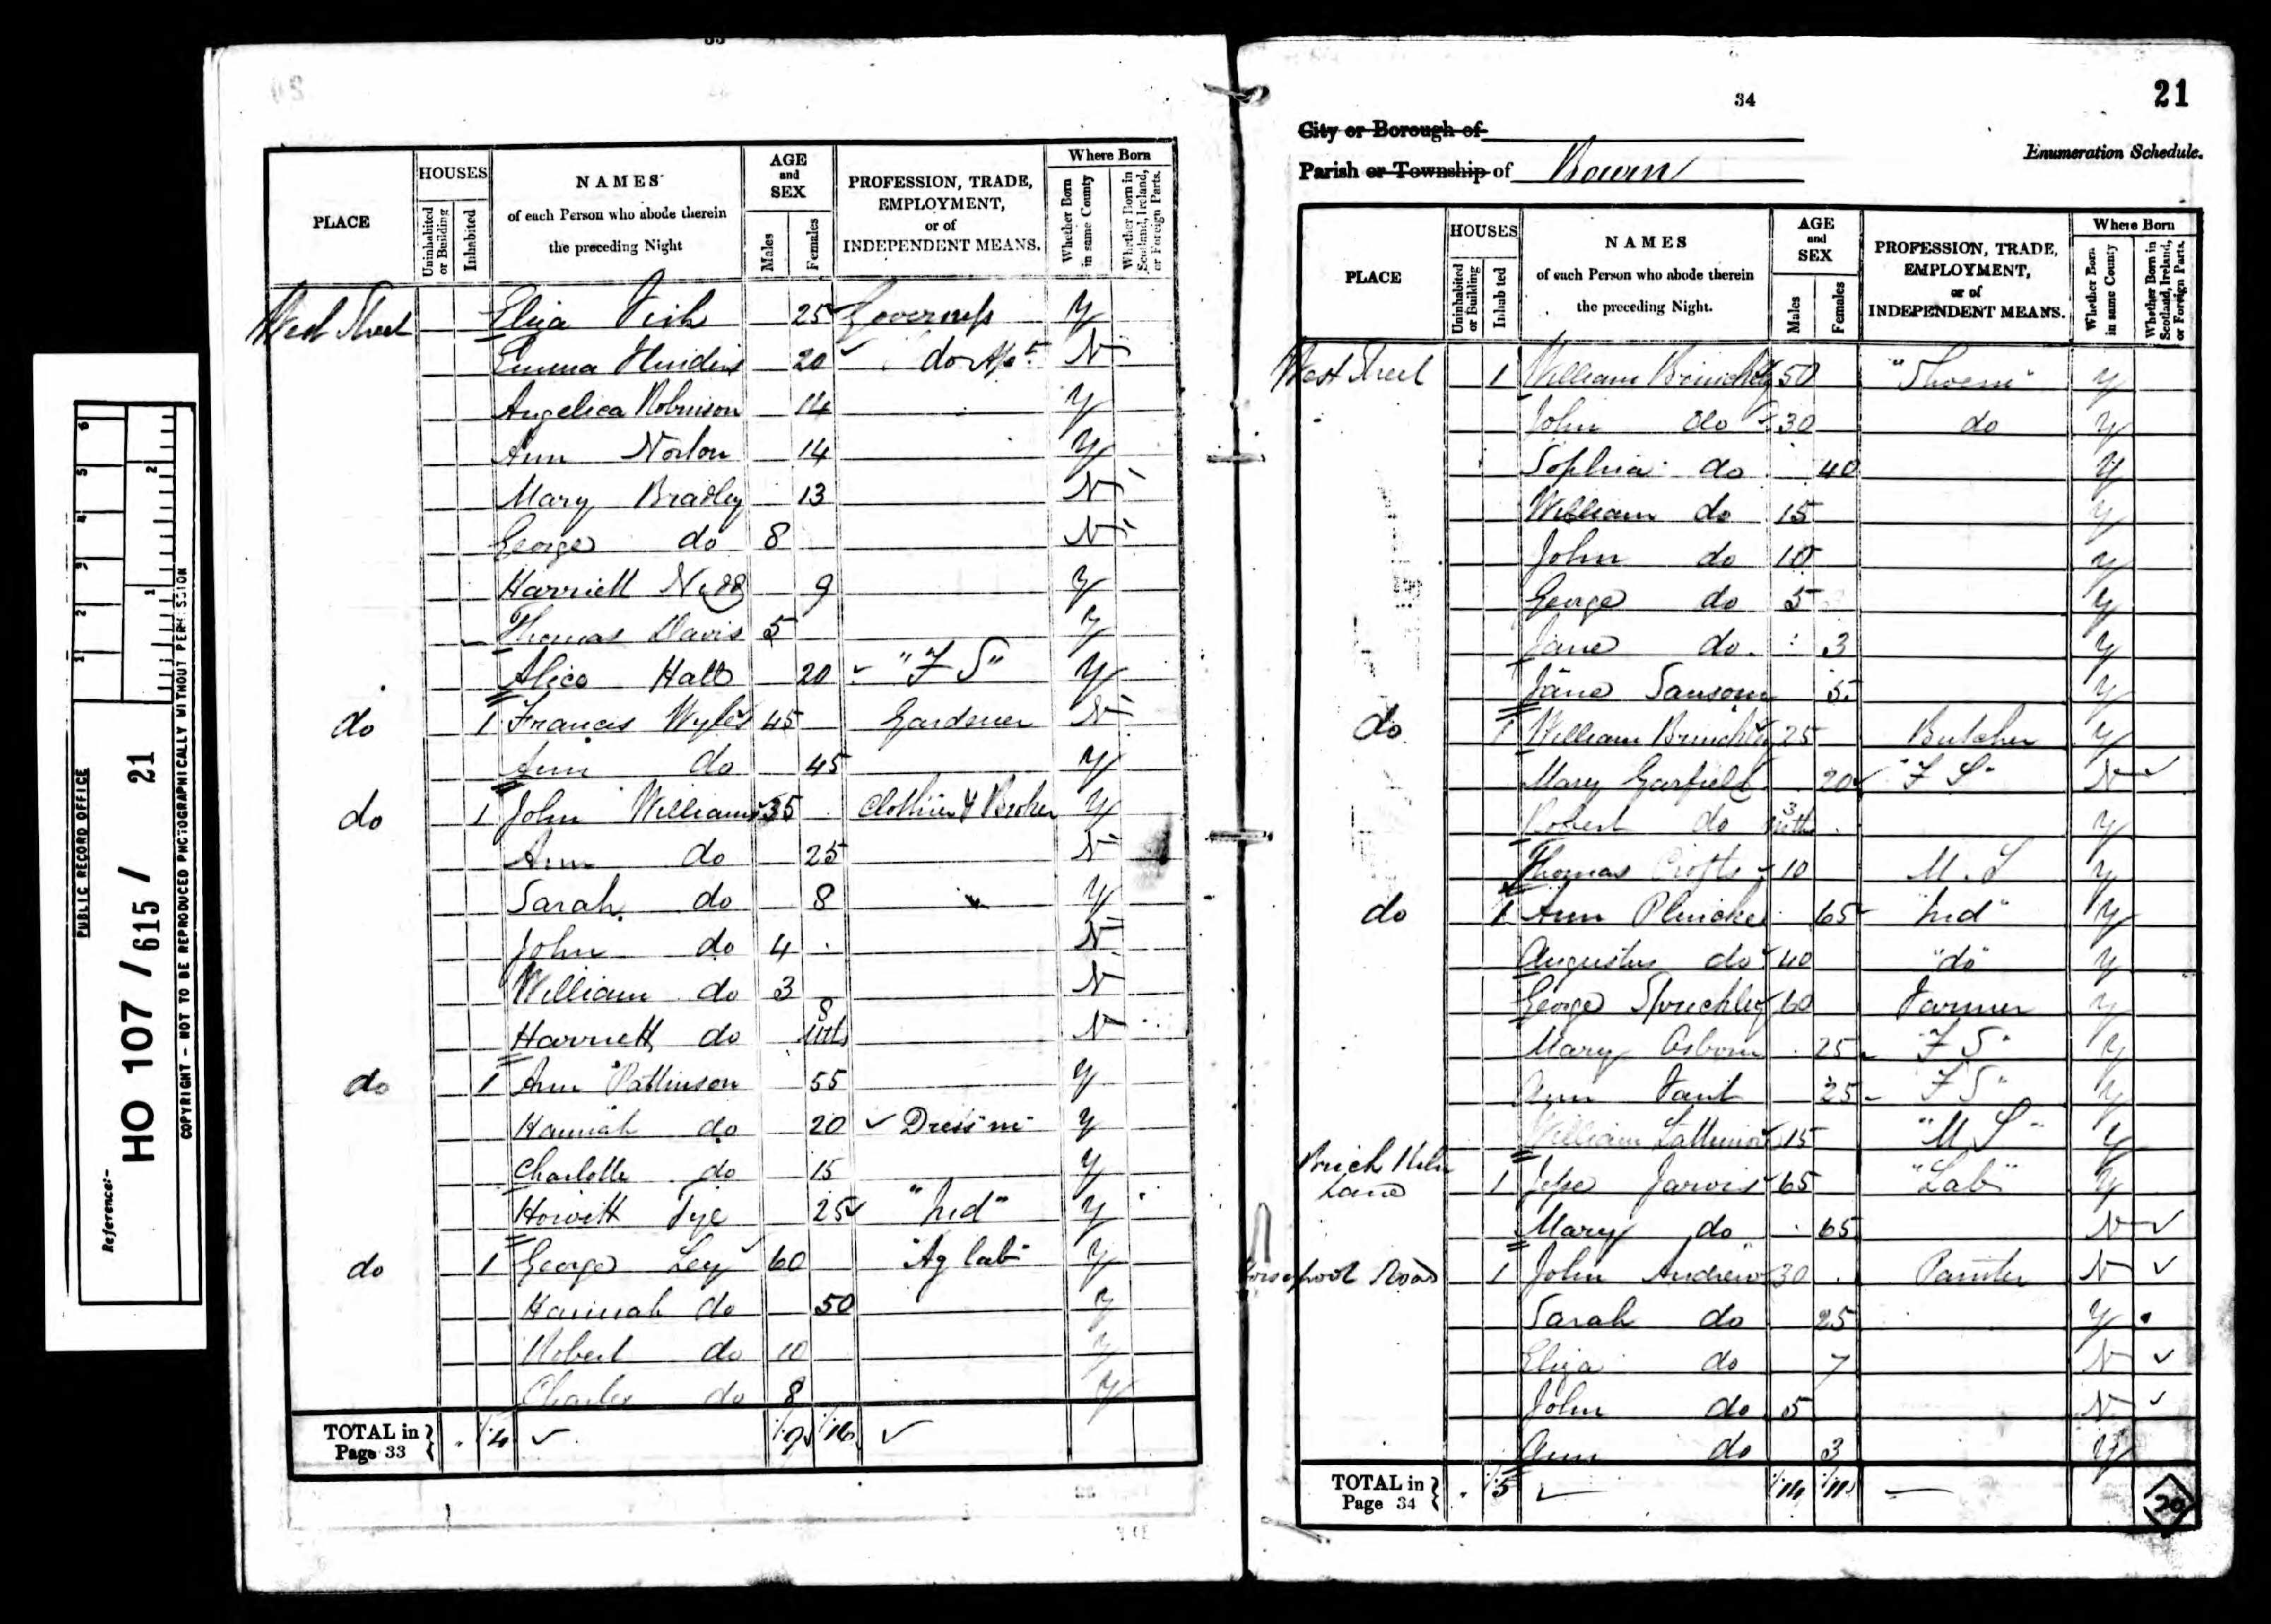 PUBLIC RECORD OFFICE
Reference:-
HO 107 / 615 / 21
COPYRIGHT - NOT TO BE REPRODUCED PHOTOGRAPHICALLY WITHOUT PERMISSION
33
PLACE
HOUSES
Uninhabited or Building
Inhabited
NAMES of each Person who abode therein the preceding Night
AGE and SEX
Males
Females
PROFESSION, TRADE, EMPLOYMENT, or of INDEPENDENT MEANS.
Where Born
Whether Born in same County
Whether Born in Scotland, Ireland, or Foreign Parts.
West Street Eliza 25 Governess Y
Emma 20 do Asst N
Angelica Robinson 14 Y
Ann Norton 14 Y
Mary Bradley 13 N
George do 8 N
Harriett 9 Y
Thomas Davis 5 Y
Alice Hall 20 "F S" Y
do 1 Francis Wyles 45 Gardener N
Ann do 45 Y
do 1 John Williams 35 Clothier & Broker Y
Ann do 25 N
Sarah do 8 Y
John do 4 N
William do 3 N
Harriett do 8 Mths N
do 1 Ann Pattinson 55 Y
Hannah do 20 Dress m Y
Charlotte do 15 Y
Howitt Tye 25 "Ind" Y
do 1 George Ley 60 "Ag lab" Y
Hannah do 50 Y
Robert do 10 Y
Charles do 8 Y
TOTAL in Page 33 4 9 16
34
21
City or Borough of
Parish or Township of Bourn
Enumeration Schedule.
PLACE
HOUSES
Uninhabited or Building
Inhabited
NAMES of each Person who abode therein the preceding Night.
AGE and SEX
Males
Females
PROFESSION, TRADE, EMPLOYMENT, or of INDEPENDENT MEANS.
Where Born
Whether Born in same County
Whether Born in Scotland, Ireland, or Foreign Parts.
West Street 1 William Brinchley 50 "Shoem" Y
John do 30 do Y
Sophia do 40 Y
William do 15 Y
John do 10 Y
George do 5 Y
Jane do 3 Y
Jane Sansom 5 Y
do 1 William Brinchley 25 Butcher Y
Mary Garfield 20 "F S" N
Robert do 3 Mths Y
Thomas Crofts 10 M. S Y
do 1 Ann 65 "Ind" Y
Augustus do 40 "do" Y
George 60 Farmer Y
Mary Osborn 25 F S" Y
Ann 25 F S" Y
William 15 "M S" Y
Brick Kiln Lane 1 Jesse Jarvis 65 "Lab" Y
Mary do 65 N
Road 1 John Andrew 30 Painter N
Sarah do 25 Y
Eliza do 7 N
John do 5 N
Ann do 3 Y
TOTAL in Page 34 5 14 11
20